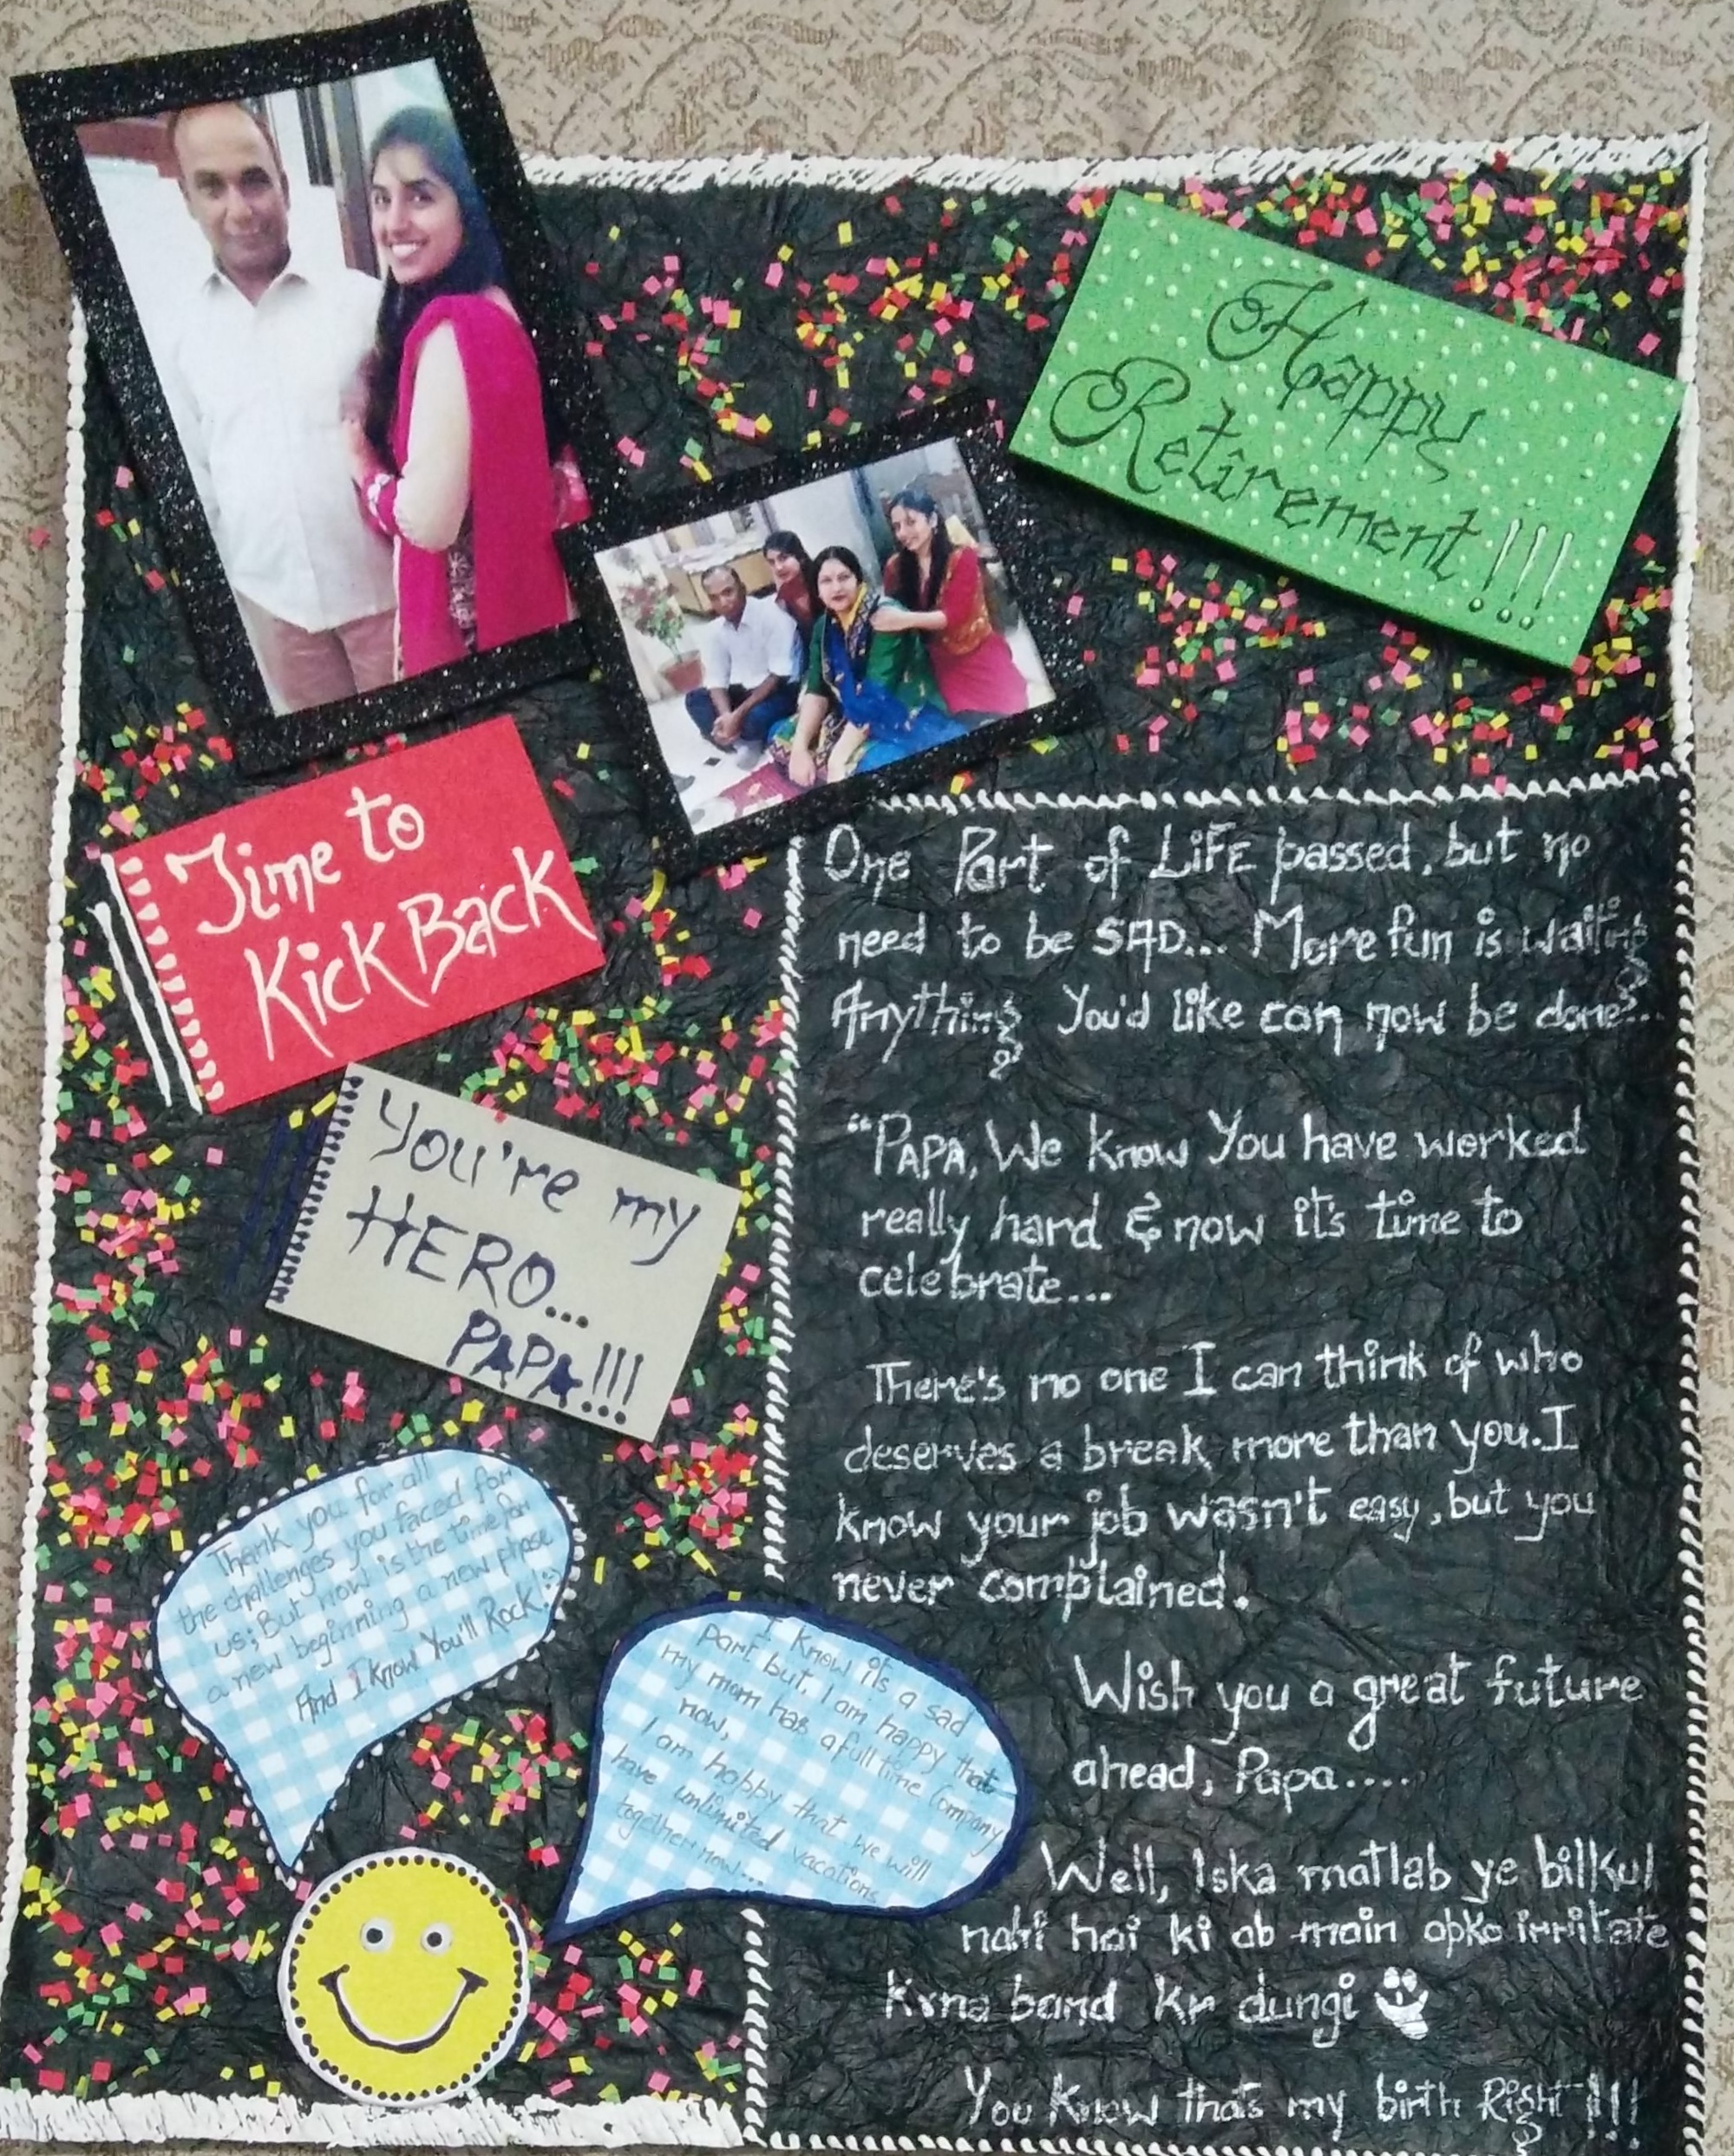 Happy
Retirement!!!
Time to
Kick Back
You're my
HERO...
PAPA!!!
Thank you for all
the challenges you faced for
us; But now is the time for
a new beginning a new phase
And I know You'll Rock! :)
I know it's a sad
part but, I am happy that
my mom has a full time Company
now,
I am happy that we will
have unlimited vacations
together now...
One Part of LIFE passed, but no
need to be SAD... More fun is waiting
Anything You'd like can now be done...
"PAPA, We know You have worked
really hard & now it's time to
celebrate...
There's no one I can think of who
deserves a break more than you. I
know your job wasn't easy, but you
never complained.
Wish you a great future
ahead, Papa.....
Well, Iska matlab ye bilkul
nahi hai ki ab main apko irritate
krna band kr dungi
You Know that's my birth Right!!!